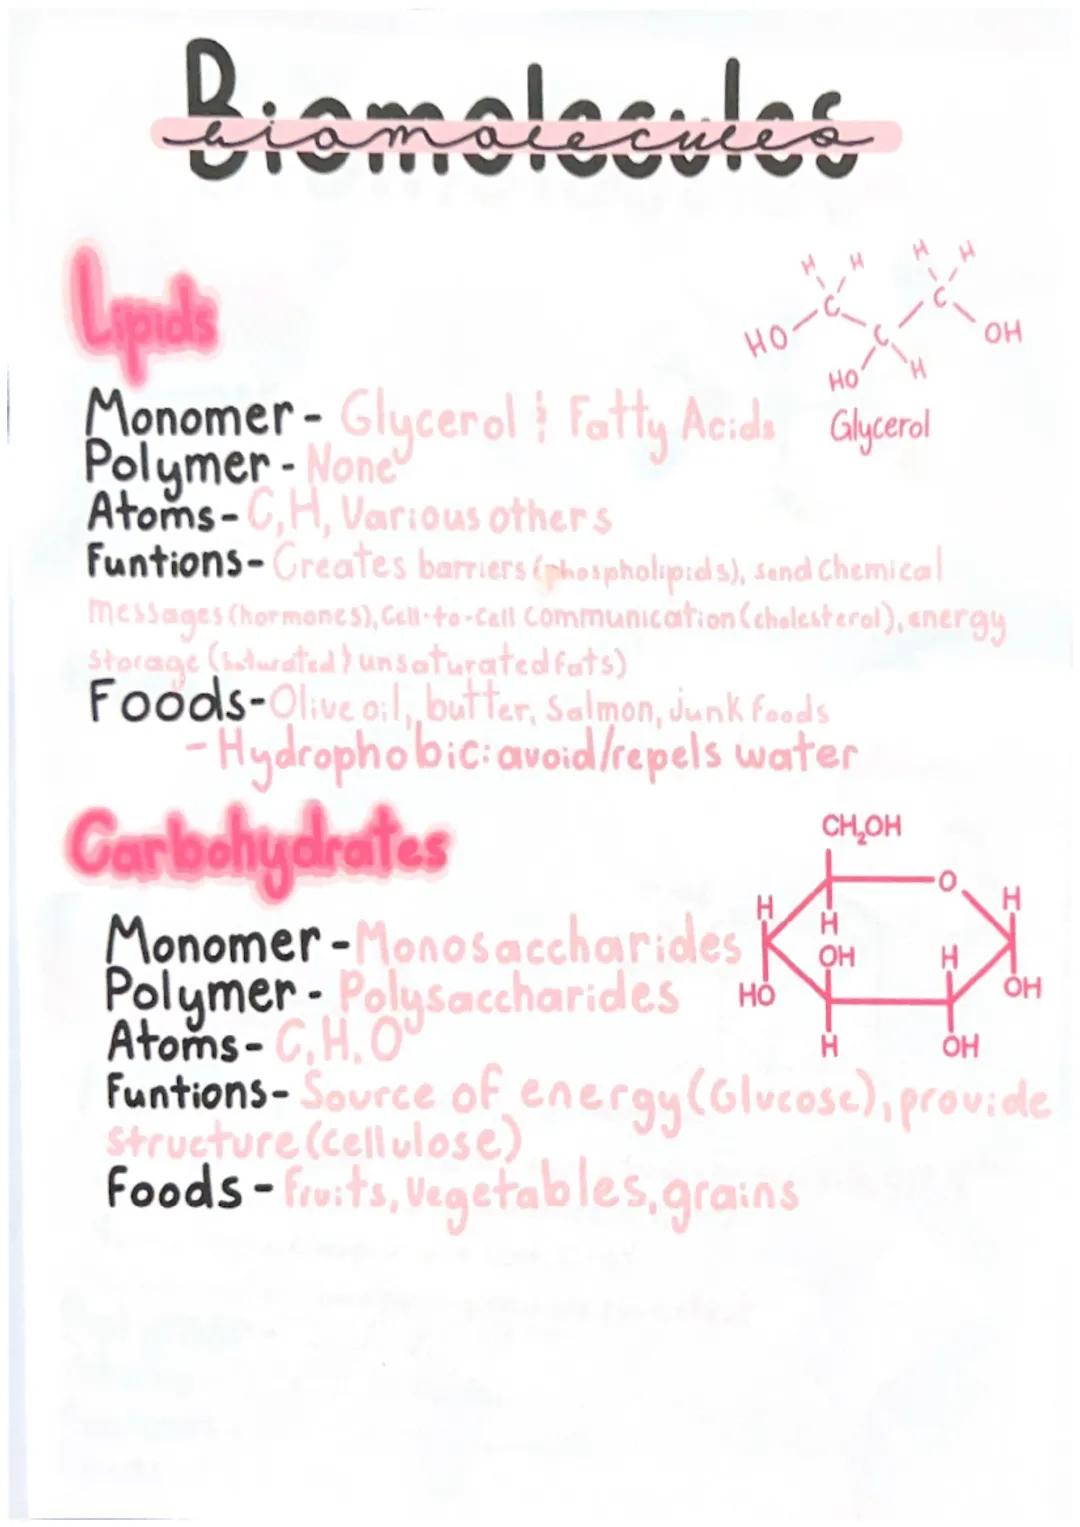 Biomolecules
biomolecules
Lipids
H H H H
C C
HO C OH
HO H
Monomer - Glycerol & Fatty Acids
Glycerol
Polymer - None
Atoms - C, H, Various others
Funtions - Creates barriers (phospholipids), send chemical
messages (hormones), Cell-to-Cell Communication (cholesterol), energy
Storage (saturated & unsaturated fats)
Foods - Olive oil, butter, Salmon, junk foods
- Hydrophobic: avoid/repels water
Carbohydrates
CH₂OH
O
H H
H
OH H
HO OH
H OH
Monomer - Monosaccharides
Polymer - Polysaccharides
Atoms - C, H, O
Funtions - Source of energy (Glucose), provide
structure (cellulose)
Foods - fruits, vegetables, grains